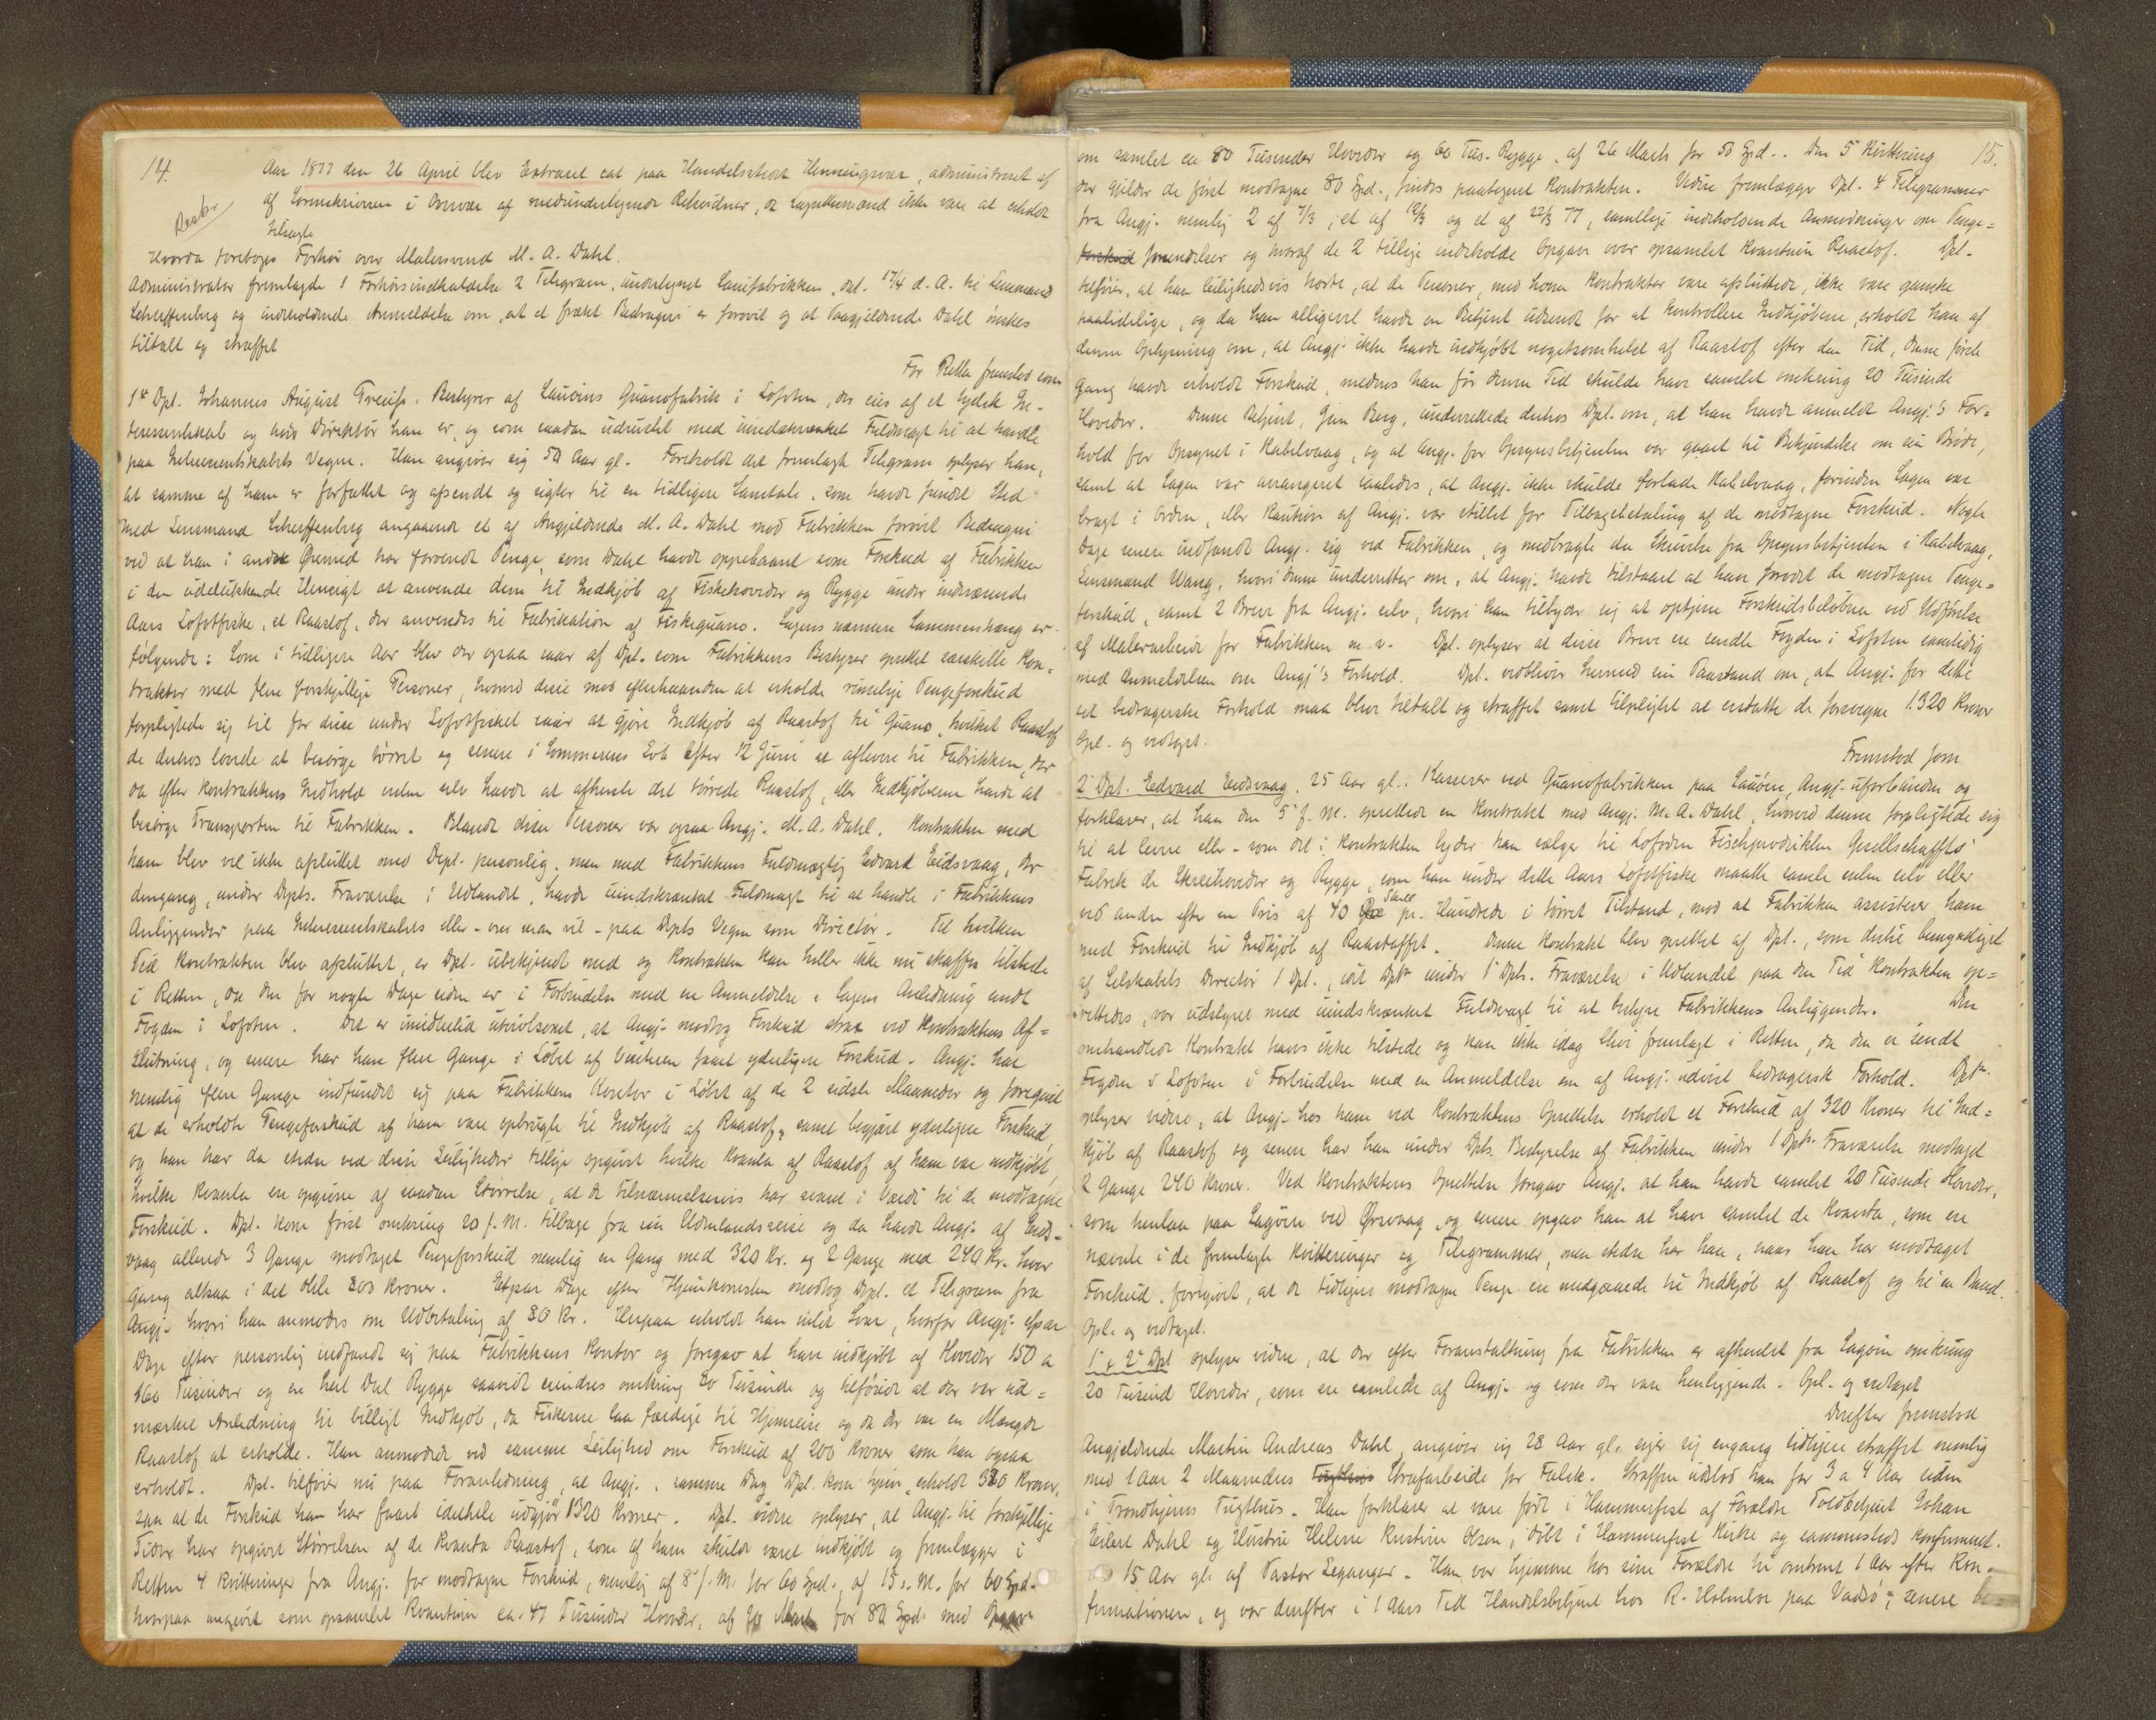 14.
Aar 1877 den 26 April blev Extraret sat paa Handelsstedet Henningsvær, administreret af
af Sorenskriveren i Overvær af medunderskrevne Retsvidner, da Laugrettesmænd ikke vare at erholdt
tilsagte
Hvorda foretoges Forhør over Malersvend M. A. Dahl.
Administrator fremlagde 1 Forhørsindkaldelse 2 Telegram, undertegnet Guanofabrikken, dat. 17/4 d. A. til Lensmand
Scheffenberg og indeholdende Anmeldelse om, at et frækt Bedrageri er forøvet og at Angjældende Dahl ønskes
tiltalt og straffet
For Retten fremstod som
1ste Dpt. Johannes August Bestyrer af Guanofabrik i Lofoten, der eies af et tydsk In-
teressentskab og hvis Direktør han er, og som saadan udrustet med uindskrænket Fuldmagt til at handle
paa Interessentskabets Vegne. Han angiver sig 50 Aar gl. Foreholdt det fremlagte Telegram oplyser han,
at samme af ham er forfattet og afsendt og sigter til en tidligere Samtale, som havde fundet Sted
med Lensmand Scheffenberg angaaende et af Angjældende M. A. Dahl mod Fabrikken forøvet Bedrageri
ved at han i andet Øiemed har forvendt Penge, som Dahl havde oppebaaret som Forskud af Fabrikken
i den udelukkende Hensigt at anvende dem til Indkjøb af Fiskehoveder og Rygge under indeværende
Aars Lofotfiske, et Raastof, der anvendes til Fabrikation af Fiskeguano. Sagens nærmere Sammenhæng er
følgende: Som i tidligere Aar blev der ogsaa iaar af Dpt. som Fabrikkens Bestyrer oprettet særskilte Kon-
trakter med flere forskjellige Personer, hvorved disse mod efterhaanden at erholde rimelige Pengeforskud
forpligtede sig til for disse under Lofotfisket iaar at gjøre Indkjøb af Raastof til Guano, hvilket Raastof
de derhos lovede at besørge tørret og senere i Sommerens Løb efter 12 Juni at aflevere til Fabrikken, der
da efter Kontraktens Indhold enten selv havde at afhente det tørrede Raastof, eller Indkjøberne havde at
besørge Transporten til Fabrikken. Blandt disse Personer var ogsaa Angj. M. A. Dahl. Kontrakten med
ham blev vel ikke afsluttet med Dept. personlig, men med Fabrikkens Fuldmægtig Edvard Eidsvaag, der
dengang, under Dpts. Fraværelse i Udlandet, havde uindskrænket Fuldmagt til at handle i Fabrikkens
Anliggender paa Interessentskabets eller - om man vil - paa Dpts Vegne som Directør. Til hvilken
Tid Kontrakten blev afsluttet, er Dpt. ubekjendt med og Kontrakten kan heller ikke nu skaffes tilstede
i Retten, da den for nogle Dage siden er i Forbindelse med en Anmeldelse i Sagens Anledning sendt
Fogden i Lofoten. Det er imidlertid utvivlsomt, at Angj. modtog Forskud strax ved Kontraktens Af-
slutning, og senere har han flere Gange i Løbet af Vinteren faaet yderligere Forskud. Angj. har
nemlig flere Gange indfundet sig paa Fabrikkens Kontor i Løbet af de 2 sidste Maaneder og foregivet
at de erholdte Pengeforskud af ham vare opbrugte til Indkjøb af Raastof, samt begjært yderligere Forskud,
og han har da stedse ved disse Leiligheder tillige opgivet hvilke Kvanta af Raastof af ham var indkjøbt,
hvilke Kvanta ere opgivne af saadan Størrelse, at de tilnærmelsesvis har svaret i Værdi til de modtagne
Forskud. Dpt. kom først omkring 20 f. M. tilbage fra sin Udenlandsreise og da havde Angj. af Eids-
vaag allerede 3 Gange modtaget Pengeforskud nemlig en Gang med 320 Kr. og 2 Gange med 240 Kr. hver
Gang altsaa i det Hele 800 Kroner. Etpar Dage efter Hjemkomsten modtog Dpt. et Telegram fra
Angj. hvori han anmodes om Udbetaling af 80 Kr. Herpaa erholdt han intet Svar, hvorfor Angj. etpar
Dage efter personlig indfandt sig paa Fabrikkens Kontor og foregav at have indkjøbt af Hoveder 150 a
160 Tusinder og en heel Deel Rygge saavidt erindres omkring 20 Tusinde og tilføiede at der var ud-
mærket Anledning til billigt Indkjøb, da Fiskerne laa færdige til Hjemreise og da der var en Mængde
Raastof at erholde. Han anmodede ved samme Leilighed om Forskud af 200 Kroner som han ogsaa
erholdt. Dpt. tilføier nu paa Foranledning, at Angj. samme Dag Dpt. kom hjem, erholdt 320 Kroner,
saa at de Forskud han har faaet idethele udgjør 1320 Kroner. Dpt. videre oplyser, at Angj. til forskjellige
Tider har opgivet Størrelsen af de Kvanta Raastof, som af ham skulde været indkjøbt og fremlægger i
Retten 4 Kvitteringer fra Angj. for modtagne Forskud, nemlig af 8 f. M. for 60 Spd., af 15 s. M. for 60 Spd.
hvorpaa angivet som opsamlet Kvantum ca. 47 Tusinder Hoveder, af Marts for 80 Spd. med Opgave
15.
om samlet ca 80 Tusinder Hoveder og 60 Tus. Rygge, af 26 Marts for 50 Spd.. Den 5 Kvittering
der gjælder de først modtagne 80 Spd., findes paategnet Kontrakten. Videre fremlægger Dpt. 4 Telegrammer
fra Angj. nemlig 2 af 7/3, et af 12/3 og et af 22/3 77, samtlige indeholdende Anmodninger om Penge-
forskud forsendelser og hvoraf de 2 tillige indeholde Opgave over opsamlet Kvantum Raastof. Dpt.
tilføier, at han leilighedsvis hørte, at de Personer, med hvem Kontrakter vare afsluttede, ikke vare ganske
paalidelige, og da han alligevel havde en Betjent udsendt for at kontrollere Indkjøbene, erholdt han af
denne Oplysning om, at Angj. ikke havde indkjøbt nogetsomhelst af Raastof efter den Tid, denne første
Gang havde erholdt Forskud, medens han før denne Tid skulde have samlet omkring 20 Tusinde
Hoveder. Denne Betjent, Berg, underrettede derhos Dpt. om, at han havde anmeldt Angj.'s For-
hold for Opsynet i Kabelvaag, og at Angj. for Opsynsbetjenten var gaaet til Bekjendelse om sin Brøde,
samt at Sagen var arrangeret saaledes, at Angj. ikke skulde forlade Kabelvaag, forinden Sagen var
bragt i Orden, eller Kaution af Angj. var stillet for Tilbagebetaling af de modtagne Forskud. Nogle
Dage senere indfandt Angj. sig ved Fabrikken, og medbragte da Skrivelse fra Opsynsbetjenten i Kabelvaag,
Lensmand Wang, hvori denne underretter om, at Angj. havde tilstaaet at have forødt de modtagne Penge-
forskud, samt 2 Breve fra Angj. selv, hvori han tilbyder sig at optjene Forskudsbeløbene ved Udførelse
af Malerarbeide for Fabrikken m. v. Dpt. oplyser at disse Breve ere sendte Fogden i Lofoten samtidig
med Anmeldelsen om Angj's Forhold. Dpt. vedbliver hermed sin Paastand om, at Angj. for dette
sit bedragerske Forhold maa blive tiltalt og straffet samt tilpligtet at erstatte de forsvegne 1320 Kroner
Opl. og vedtaget.
Fremstod som
2' Dpt. Edvard Eidsvaag, 25 Aar gl.. Kasserer ved Guanofabrikken paa Angj. uforbunden og
forklarer, at han den 5' f. M. oprettede en Kontrakt med Angj. M. A. Dahl, hvorved denne forpligtede sig
til at levere eller - som det i Kontrakten lyder han sælger til Lofoden Fischprodukten Gesellschafts'
Fabrik de Skreihoveder og Rygge, som han under dette Aars Lofotfiske maatte samle enten selv eller
ved andre efter en Pris af 40 pr. Hundrede i tørret Tilstand, mod at Fabrikken assisterer ham
med Forskud til Indkjøb af Raastoffet. Denne Kontrakt blev oprettet af Dpt., som dertil bemyndiget
af Selskabets Directør 1 Dpt., idet Dptn. under 1' Dpts. Fraværelse i Udlandet paa den Tid Kontrakten op-
rettedes, var udstyret med uindskrænket Fuldmagt til at bestyre Fabrikkens Anliggender. Den
omhandlede Kontrakt haves ikke tilstede og kan ikke idag blive fremlagt i Retten, da den er sendt
Fogden i Lofoten i Forbindelse med en Anmeldelse om af Angj. udvist bedragersk Forhold. Dptn.
oplyser videre, at Angj. hos ham ved Kontraktens Oprettelse erholdt et Forskud af 320 Kroner til Ind-
kjøb af Raastof og senere har han under Dpts. Bestyrelse af Fabrikken under 1 Dpts. Fraværelse modtaget
2 Gange 240 Kroner. Ved Kontraktens Oprettelse foregav Angj. at han havde samlet 20 Tusinde Hoveder,
som henlaa paa ved Ørsvaag og senere opgav han at have samlet de Kvanta, som ere
nævnte i de fremlagte Kvitteringer og Telegrammer, men stedse har han, naar han har modtaget
Forskud, foregivet, at de tidligere modtagne Penge ere medgaaede til Indkjøb af Raastof og til en Baad.
Opl. og vedtaget.
1' & 2' Dpt oplyser videre, at der efter Foranstaltning fra Fabrikken er afhentet fra omkring
20 Tusind Hoveder, som ere samlede af Angj. og som der vare henliggende. Opl. og vedtaget
Derefter fremstod
Angjeldende Martin Andreas Dahl, angiver sig 28 Aar gl. siger sig engang tidligere straffet nemlig
med 1 Aar 2 Maaneders Tugthus Strafarbeide for Falsk. Straffen udstod han for 3 a 4 Aar siden
i Trondhjems Tugthus. Han forklarer at være født i Hammerfest af Forældre Toldbetjent Johan
Eilert Dahl og Hustrue Helene Kristine Olsen, døbt i Hammerfest Kirke og sammesteds konfirmeret.
15 Aar gl. af Pastor Leganger. Han var hjemme hos sine Forældre til omtrent 1 Aar efter Kon-
firmationen, og var derefter i 1 Aars Tid Handelsbetjent hos R. Holmboe paa Vadsø; senere be-